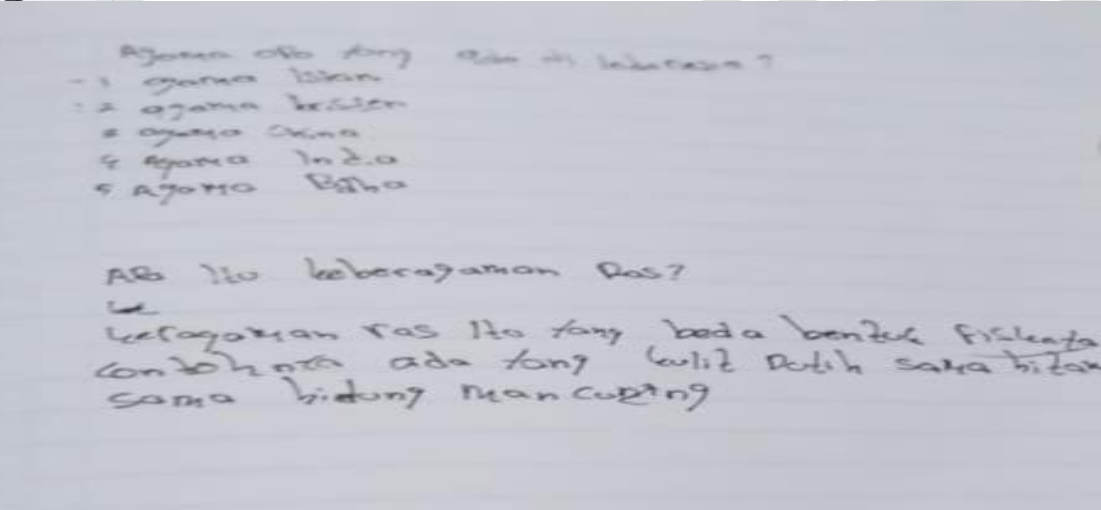 Agama apa yang ada di indonesia?
- 1 agama islan
- 2 agama kristen
3 agama China
4 Agama India
5 Agama Budha
Apa itu keberagaman Ras?
keragaman ras itu yang beda bentuk fisiknya
contohnya ada yang kulit putih sama hitam
sama hidung mancung